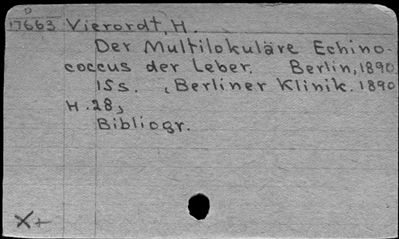 17663 Vierordt, H.
Der Multilokuläre Echino-
coccus der Leber. Berlin, 1890
15s. , Berliner Klinik. 1890
H. 28,
Bibliogr.
X+